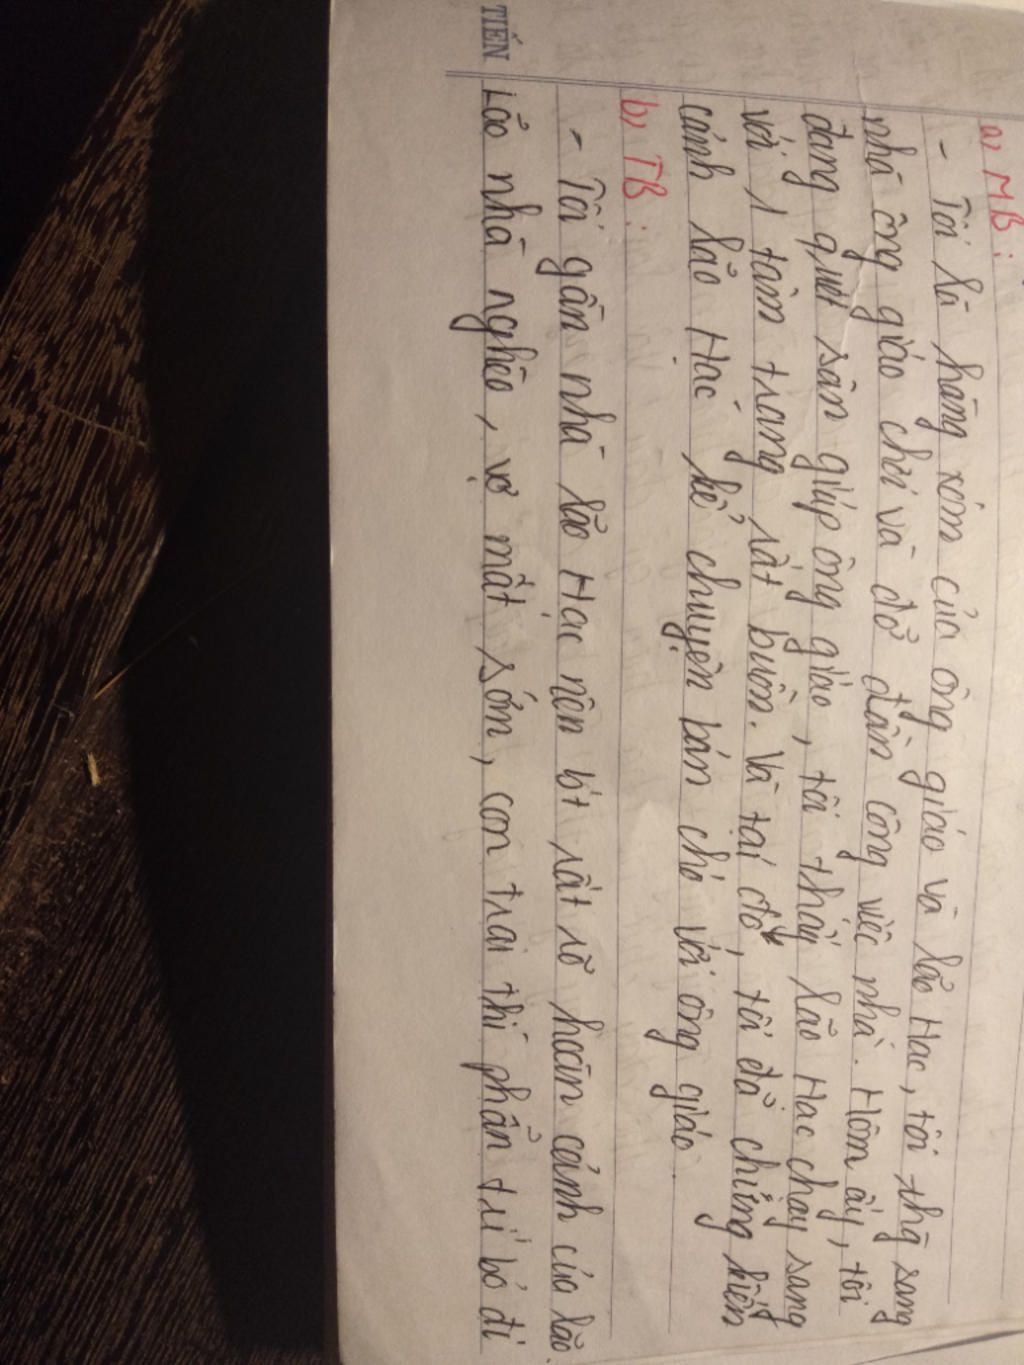 a) MB:
- Tôi là hàng xóm của ông giáo và lão Hạc, tôi thg sang
nhà ông giáo chơi và đỡ đần công việc nhà. Hôm ấy, tôi
đang quét sân giúp ông giáo, tôi thấy lão Hạc chạy sang
với 1 tâm trạng rất buồn. Và tại đó, tôi đã chứng kiến
cảnh lão Hạc kể chuyện bán chó với ông giáo.
b) TB:
- Tôi gần nhà lão Hạc nên bt rất rõ hoàn cảnh của lão.
Lão nhà nghèo, vợ mất sớm, con trai thì phẫn trí bỏ đi
TIẾN